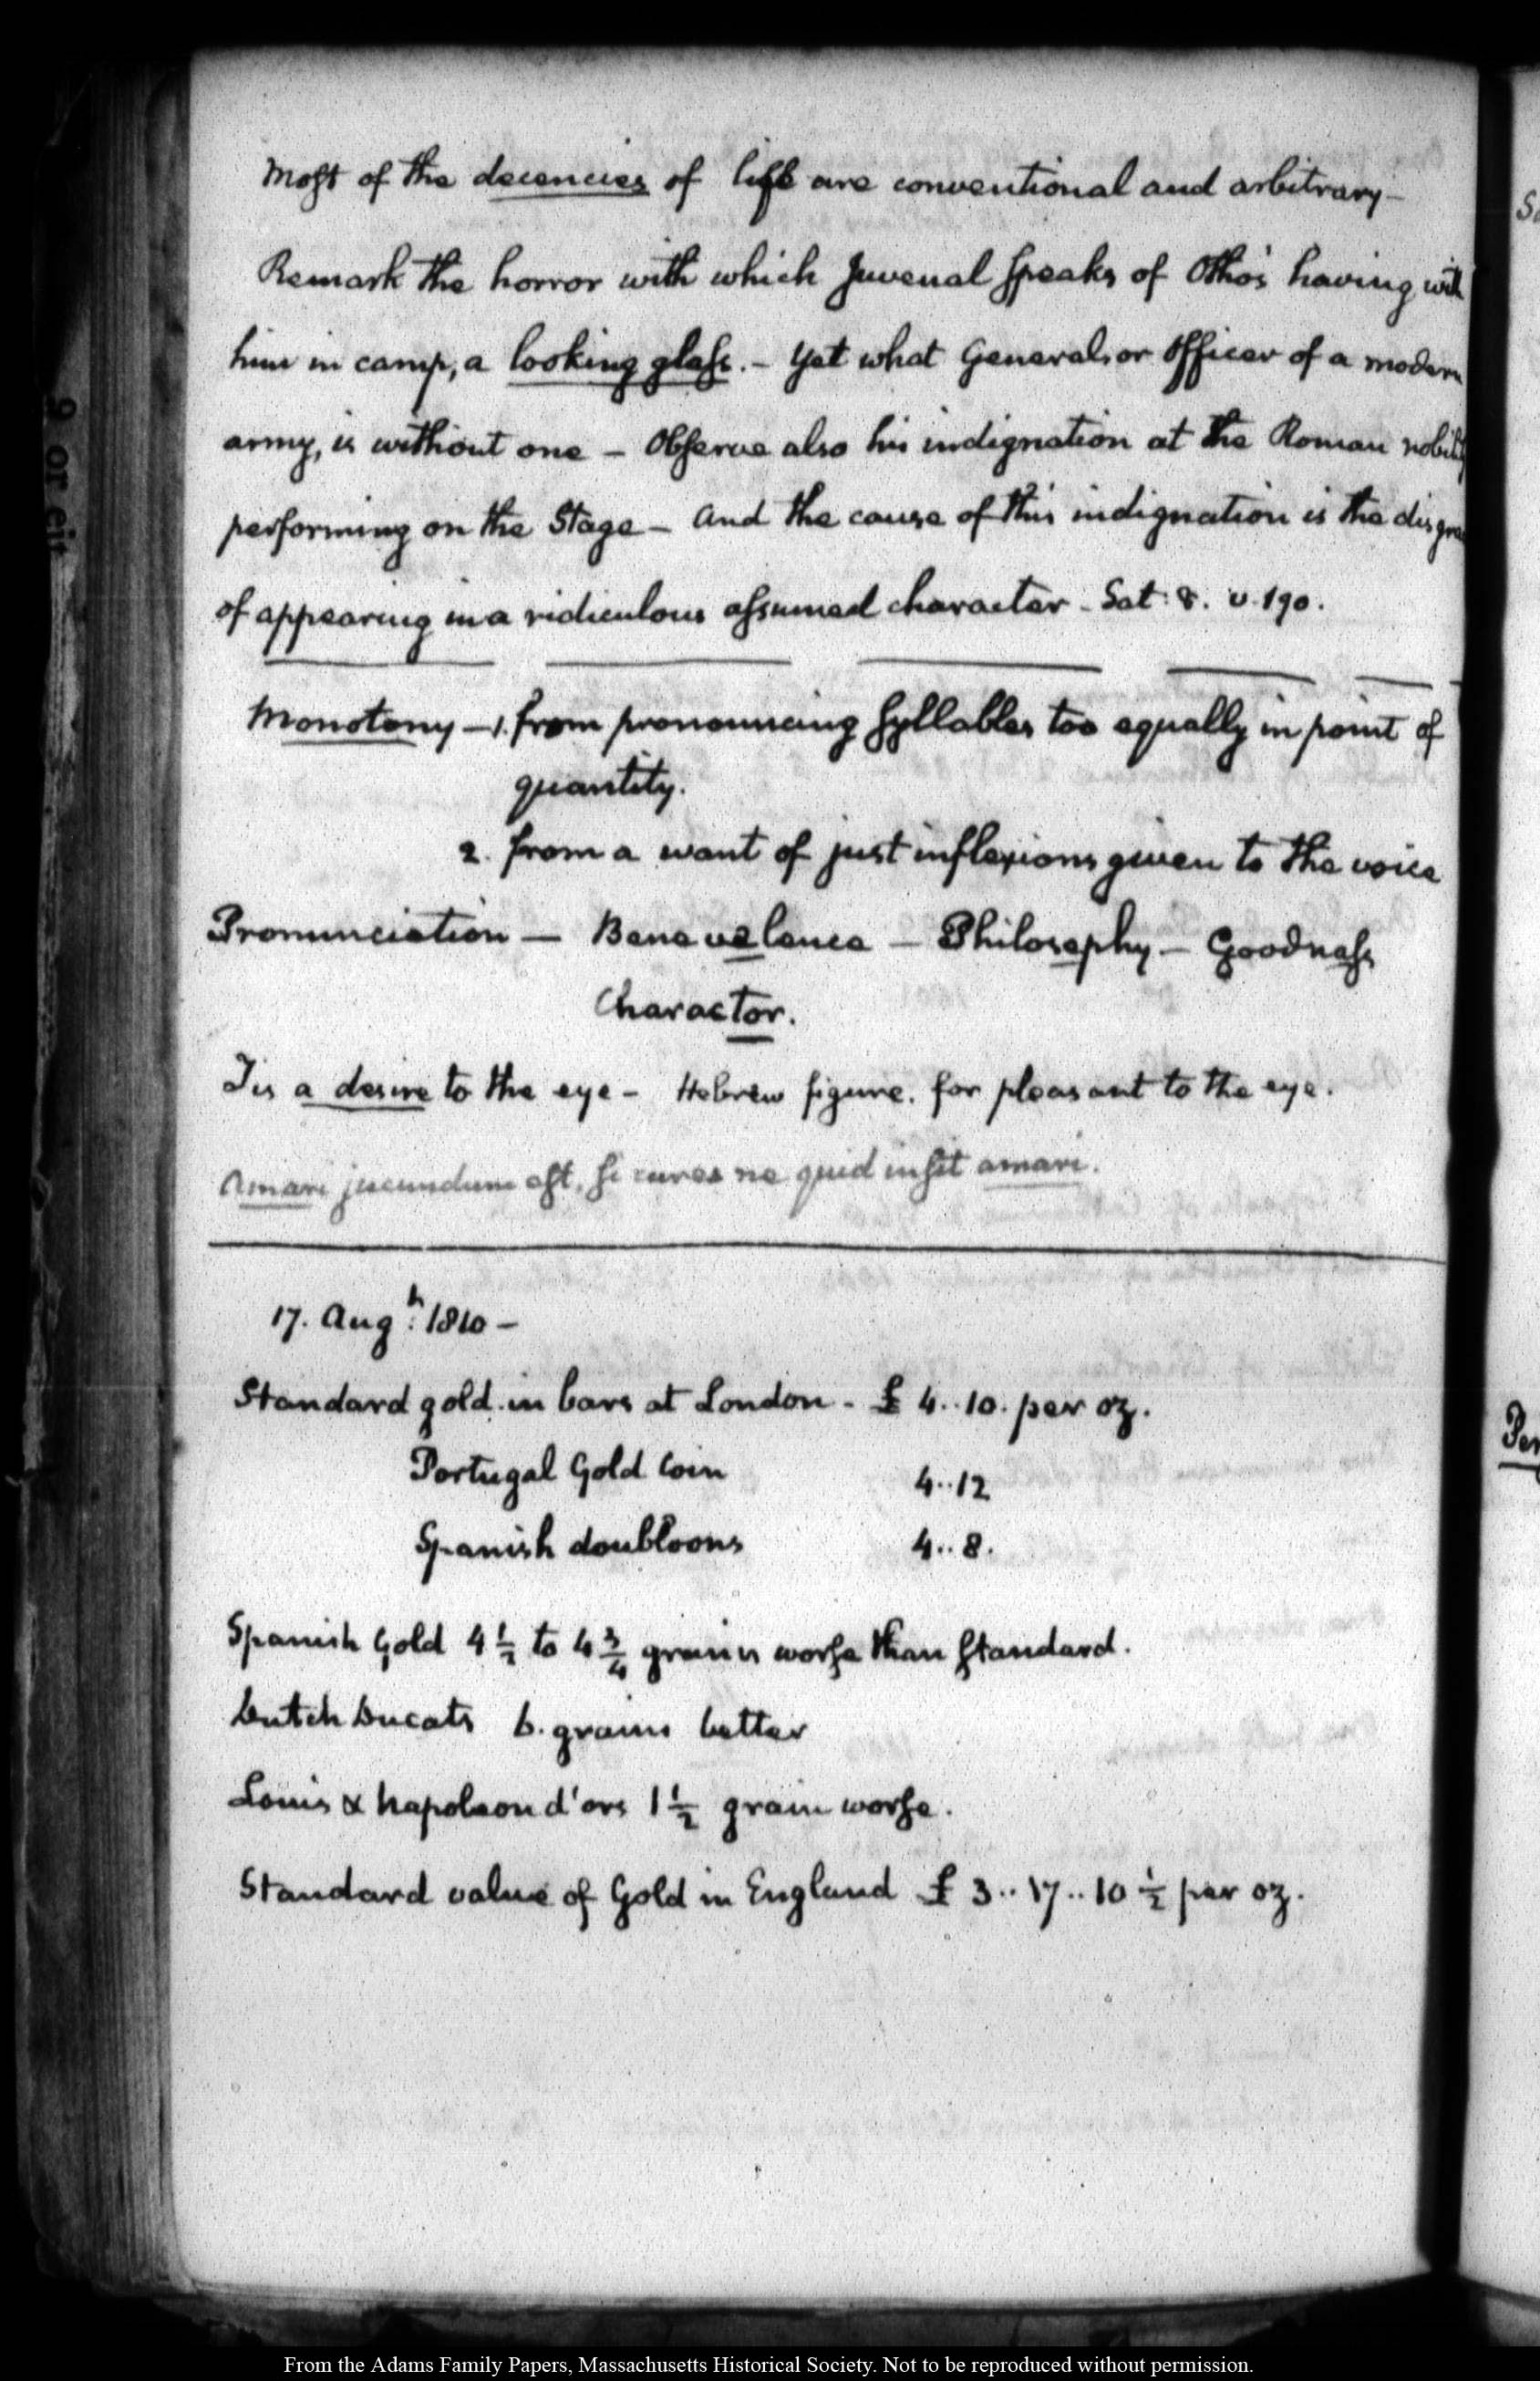 Most of the decencies of life are conventional and arbitrary –
Remark the horror with which Juvenal speaks of Otho's having with
him in camp, a looking glass. – Yet what General, or officer of a modern
army, is without one – Observe also his indignation at the Roman nobility
performing on the Stage – And the cause of this indignation is the disgra
of appearing in a ridiculous assumed character – Sat: 8. v. 190.
Monotony – 1. from pronouncing syllables too equally in point of
quantity.
2. from a want of just inflexions given to the voice
Pronunciation – Benevelence – Philosephy – Goodnass
Charactor.
Tis a desire to the eye – Hebrew figure. for pleasant to the eye.
Amari jucundum est, si cures ne quid insit amari.
17. Aug:h 1810 –
Standard gold in bars at London – £ 4..10. per oz.
Portugal Gold Coin 4..12
Spanish doubloons 4..8.
Spanish Gold 4 1/2 to 4 3/4 grains worse than standard.
Dutch Ducats 6. grains better
Louis & Napoleon d'ors 1 1/2 grain worse.
Standard value of Gold in England £ 3..17..10 1/2 per oz.
9 or eit
Per
From the Adams Family Papers, Massachusetts Historical Society. Not to be reproduced without permission.